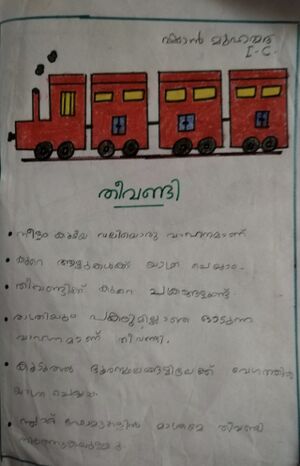 മുഹമ്മദ്
I-C
തീവണ്ടി
• നീളം കൂടിയ വലിയൊരു വാഹനമാണ്
• കുറെ ആളുകൾക്ക് യാത്ര ചെയ്യാം.
• തീവണ്ടിക്ക് കുറെ ചക്രങ്ങളുണ്ട്.
• രാത്രിയും പകലുമില്ലാതെ ഓടുന്ന
വാഹനമാണ് തീവണ്ടി.
• കൂടുതൽ ദൂരസ്ഥലങ്ങളിലേക്ക് വേഗത്തിൽ
യാത്ര ചെയ്യാം
• മാത്രമെ തീവണ്ടി